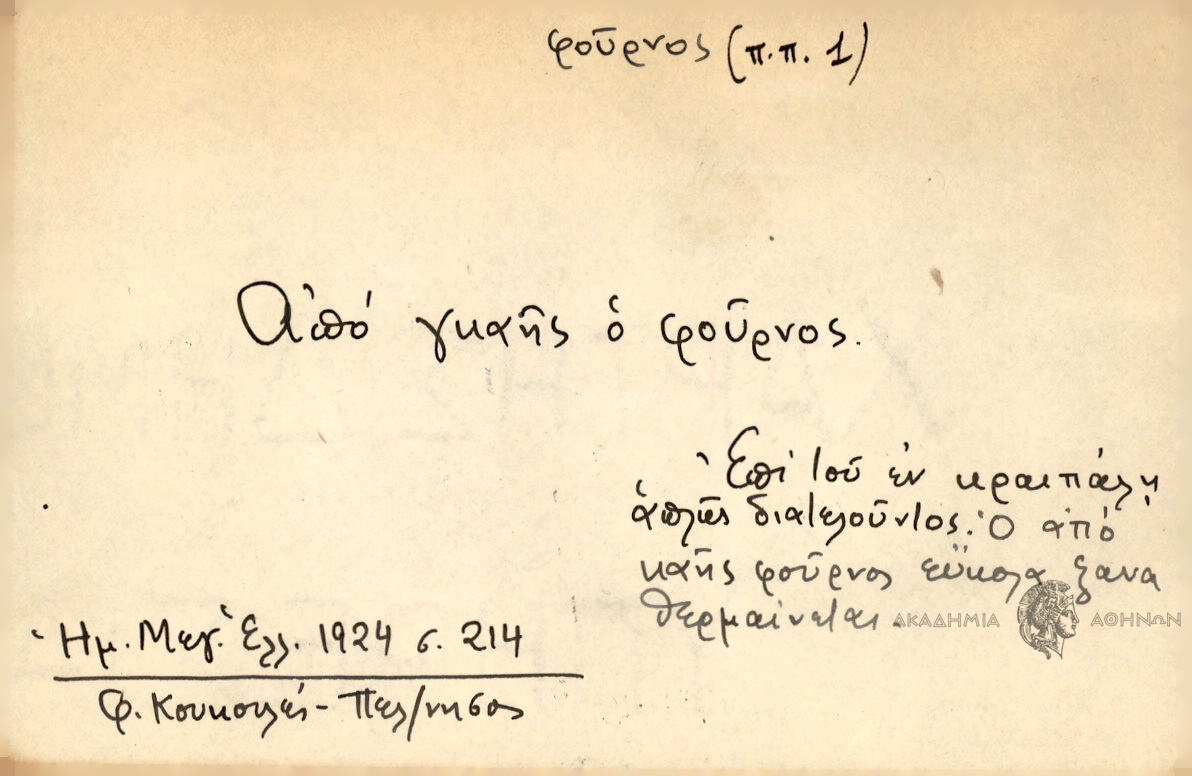 φοῦρνος (π.π. 1)
Ἀπό γκαῆς ὁ φοῦρνος.
Ἐπί τοῦ ἐν κραιπάλῃ
ἁπλῶς διατελοῦντος. Ὁ ἀπό
καῆς φοῦρνος εὔκολα ξανα
θερμαίνεται.
ΑΚΑΔΗΜΙΑ ΑΘΗΝΩΝ
Ἡμ. Μεγ. Ἑλλ. 1924 σ. 214
Φ. Κουκουλές - Πελ/νησος